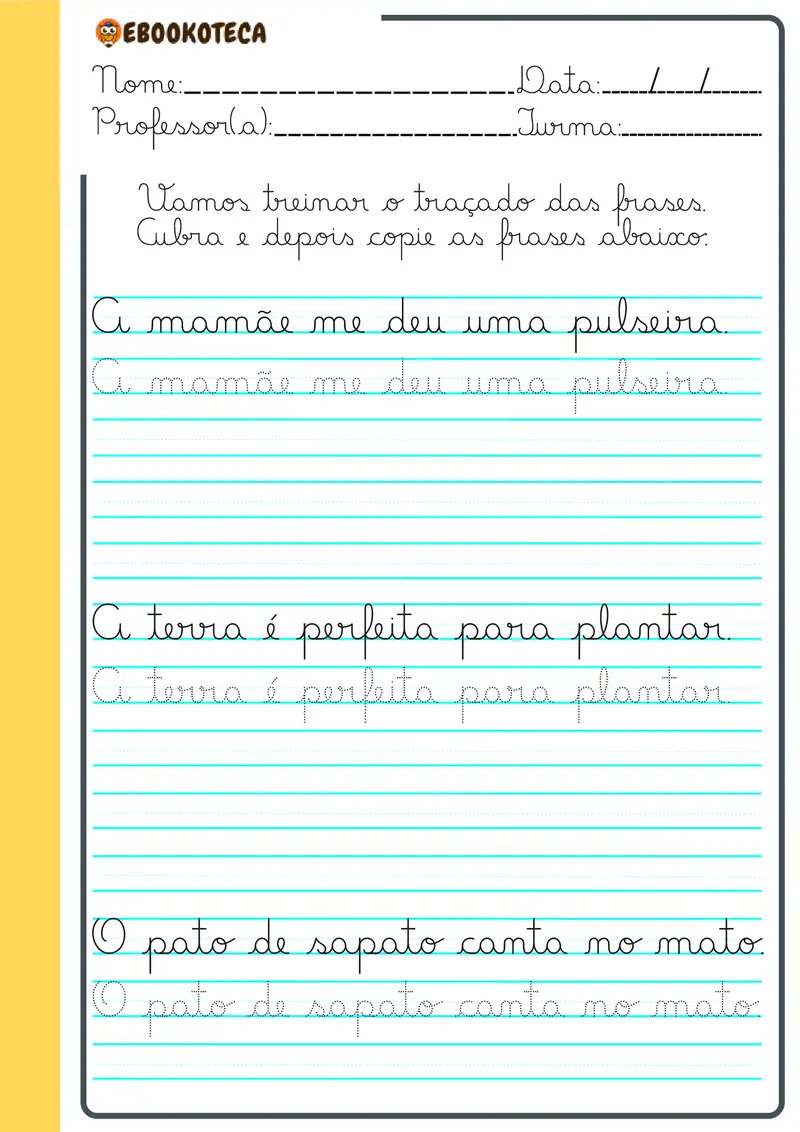 EBOOKOTECA
Nome:_________________Data:_____/____/______
Professor(a):_______________Turma:_______________
Vamos treinar o traçado das frases.
Cubra e depois copie as frases abaixo:
A mamãe me deu uma pulseira.
A mamãe me deu uma pulseira.
A terra é perfeita para plantar.
A terra é perfeita para plantar.
O pato de sapato canta no mato.
O pato de sapato canta no mato.